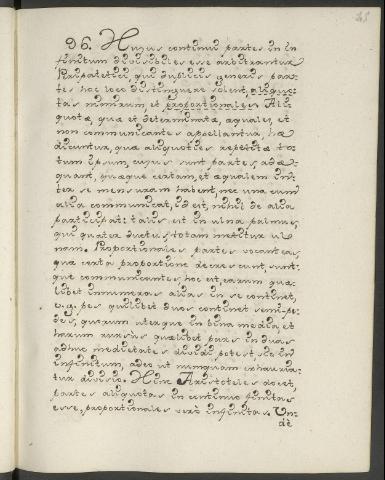 96. Hujus continui partes in in
finitum divisibiles esse arbitrantur
Peripatetici, qui duplicis generis par-
tes hoc loco distinguere solent, aliquo-
tas nimirum, et proportionales. Ali
quotæ, quæ et determinatæ, æquales, et
non communicantes appellantur, hæ
dicuntur, quæ aliquoties repetitæ to-
tum ipsum, cujus sunt partes, adæ-
quant, quæque certam, et æqualem in-
ter se mensuram habent, nec una cum
alia communicat, id est, nihil de alia
participat: talis est in ulna palmus,
qui quater ductus, totam metitur ul
nam. Proportionales partes vocant eas,
quæ certa proportione decrescunt, sunt-
que communicantes, hoc est, earum quæ-
libet innumeras alias in se continet,
v.g. pes quilibet duos continet semipe-
des, quorum uterque in bina media, et
harum rursus quælibet pars in duas
adhuc medietates dividi potest, sic in
infinitum, adeo ut nunquam exhauria-
tur divisio. Hinc Aristoteles docet,
partes aliquotas in continuo finitas
esse, proportionales verò infinitas. Un-
dè